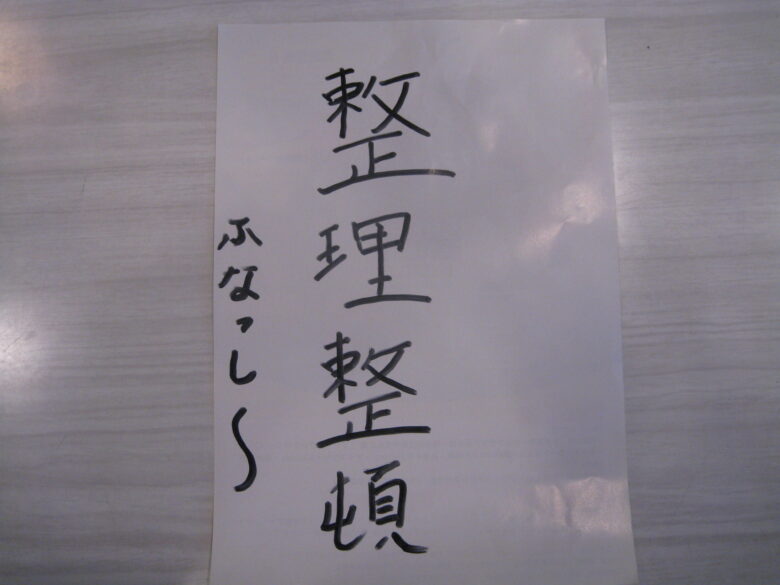 整理整頓
ふなっし〜